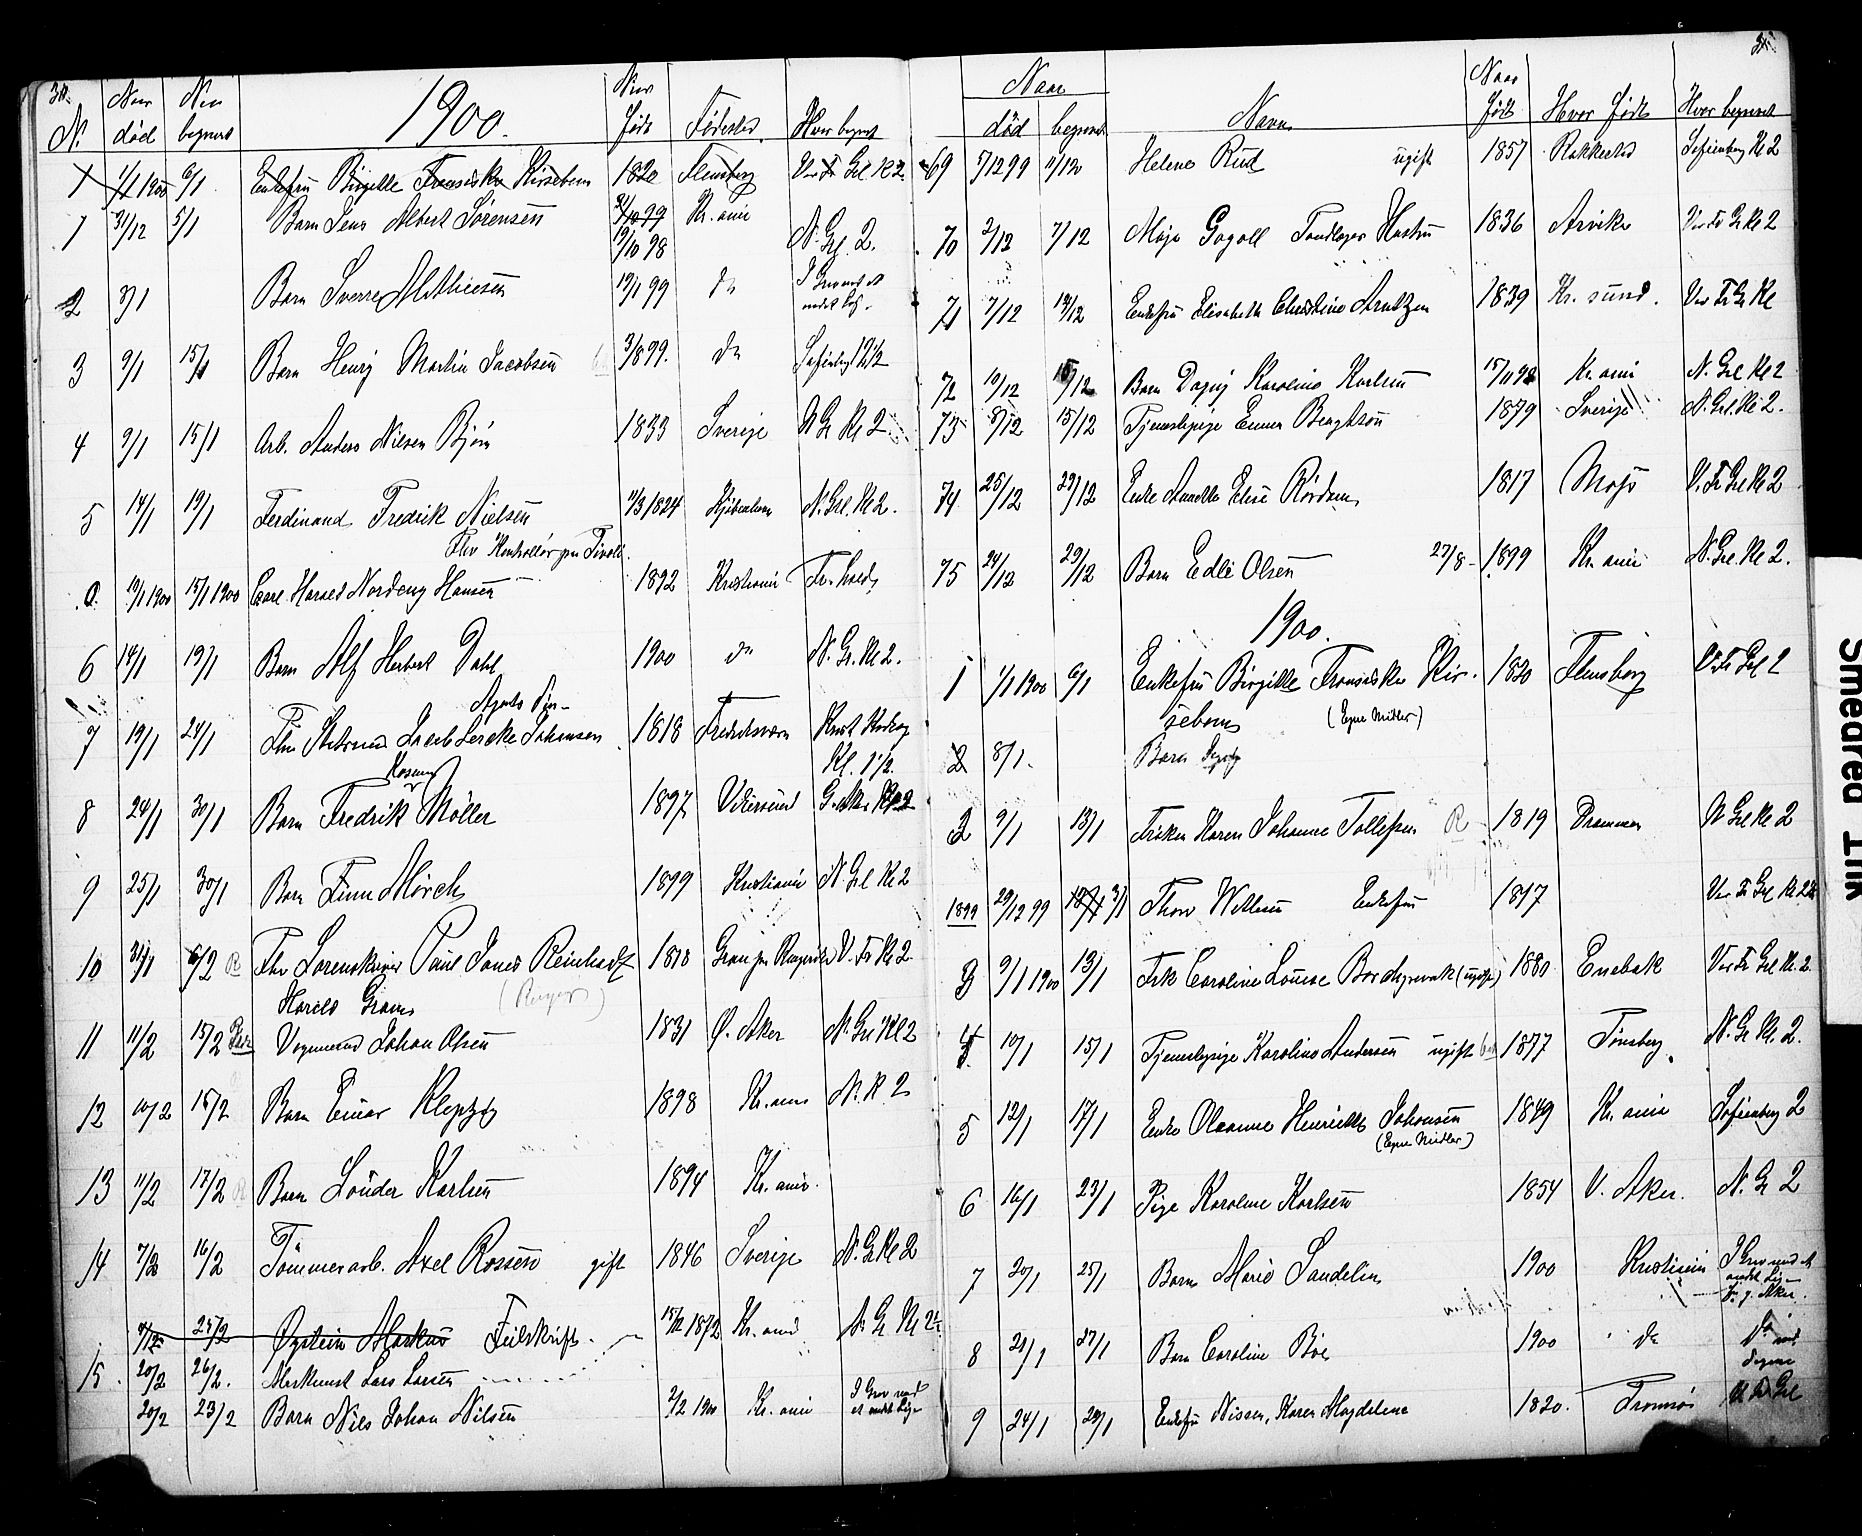 30.
N. Naar død Naar begravet 1900. Naar født Fødested Hvor begravet
1 1/1 1900 6/1 Enkefru Birgitte Fransiska Kirsebom 1820 Flensborg V. Fr Grl Kl 2.
1 31/12 5/1 Barn Jens Albert Sørensen 31/12 99 Kr.ania
19/10 98 N. Grl. 2.
2 3/1 Barn Sverre Mathiesen 19/1 99 do I Grav med et
andet Lig.
3 9/1 15/1 Barn Henry Martin Jacobsen 3/8 99. do Sofienberg Kl 2
4 9/1 15/1 Arb. Anders Nilsen Bjørn 1833 Sverige N Gr Kl 2
5 14/1 19/1 Ferdinand Fredrik Nielsen 11/3 1824 Kjøbenhavn N. Grl. Kl 2.
Fhv Kontrollør paa Tivoli.
0. 10/1 1900 15/1 1900 Carl Harald Nordeng Hansen 1892 Kristiania
6 14/1 19/1 Barn Alf Herbert Dahl 1900 do N. Gr. Kl 2.
7 19/1 24/1 Jacob Lercke Johansen 1818 Fredriksværn
Kl. 1 1/2.
8 24/1 30/1 Barn Fredrik Møller 1897 Vikersund G. Aker Kl 2
9 25/1 30/1 Barn Finn Mørch 1899 Kristiania N. Grl Kl 2
10 31/1 6/2 R Fhv Sorenskriver Paul Jones Reinhardt 1818 Gran paa V. Fr Kl 2
Harald Gram
11 11/2 15/2 Vognmand Johan Olsen 1831 Ø. Aker N. Grl Kl 2
12 10/2 16/2 Barn Einar 1898 Kr.ania N. K 2
13 11/2 17/2 R Barn Karlsen 1894 Kr.ania.
14 7/2 16/2 Tømmerarb. Axel Rossen gift 1846 Sverige N. Gr Kl 2
25/2 Øystein Markus Feilskrift. 15/12 1872 Kr.ania N. Gr Kl 2
15. 20/2 26/2. Lars Larsen
20/2 23/2 Barn Nils Johan Nilsen 2/2 1900 Kr.ania I Grav med
et andet Lig
31.
Naar
død begravet Navn Naar født Hvor født Hvor begravet
69 5/12 99 11/12 Helene Rud ugift 1857 Rakkestad Sofienberg Kl 2
70 2/12 7/12 Maja Gogoll Tandlæge Hustru 1836 Arvika Vor Fr Gr Kl 2
71 7/12 14/12 Enkefru Elisabeth Christine Arntzen 1839 Kr. sund. Vor Fr Gr Kl
72 10/12 15/12 Barn Dagny Karoline Karlsen 15/11 98 Kr.ania N. Grl Kl 2
73 8/12 15/12 Tjenestepige Emma Bengtson 1879 Sverige N. Grl. Kl 2.
74 25/12 29/12 Enke Elise Rørdam 1817 Moss V. Fr Grl Kl 2
75 24/12 29/12 Barn Edle Olsen 27/8 - 1899 Kr.ania N. Grl. Kl 2.
1900.
1 1/1 1900 6/1 Enkefru Birgitte Fransiska Kir- 1820 Flensborg V. Fr Grl 2
sebom (Egne Midler)
2 8/1. Barn
2 9/1 13/1 Frøken Karen Johanne Tollefsen R 1819 Drammen N Grl Kl 2
1899 29/12 99 3/1 Thora Wettesen Enkefru 1817 Vor Fr Grl Kl 2
3 9/1 1900 13/1 Frk Caroline Louise Borchgrevink (ugift) 1880 Enebak Vor Fr Grl Kl. 2.
4 10/1 15/1 Tjenestepige Karoline Andersen ugift 1877 Tønsberg N. Gr Kl. 2.
5 12/1 17/1 Enke Oleanne Henrikke Johansen 1849 Kr.ania Sofienberg 2
(Egne Midler)
6 16/1 23/1 Pige Karoline Karlsen 1854 V. Aker. N. Gr 2
7 20/1 25/1 Barn Marie Sandelin 1900 Kristiania I Grav med et
andet Lig
V. Aker.
8 21/1 27/1 Barn Caroline Bøe 1900 do do
9 24/1 29/1 Enkefru Nissen, Karen Magdalene 1820. Tromsø V. Fr Grl
Smeared Ink